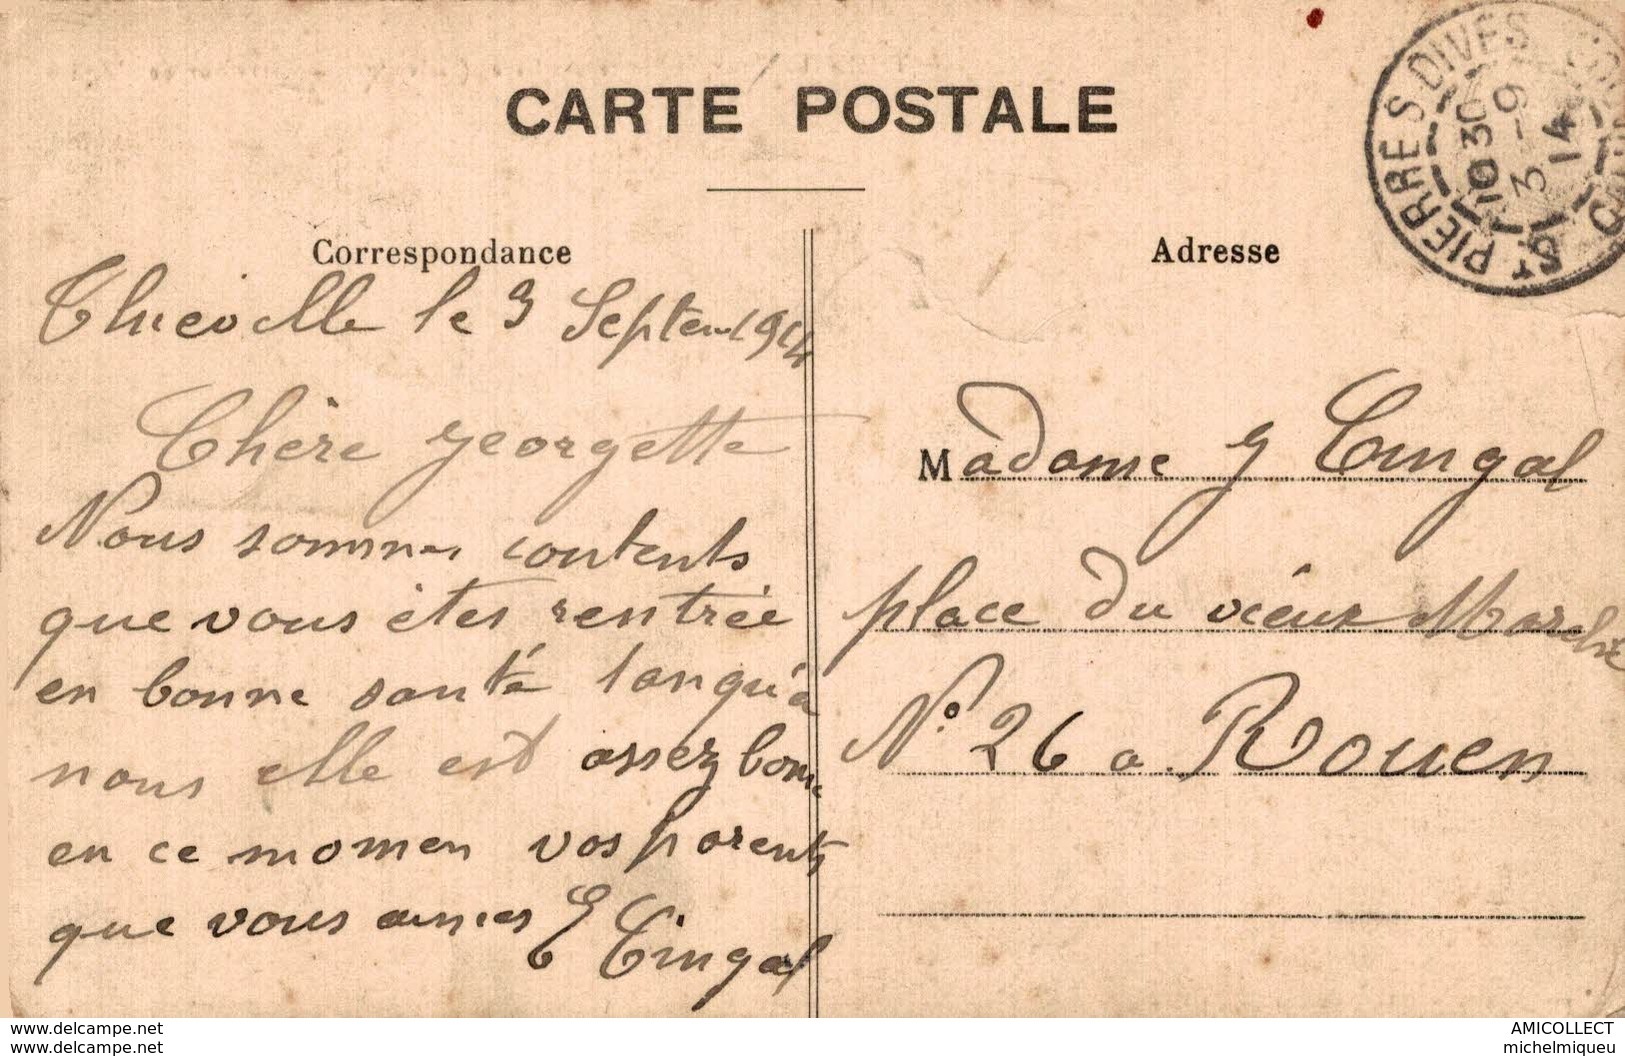 CARTE POSTALE
Correspondance
Thieville le 3 Septem 1914
Chère Georgette
Nous sommes contents
que vous êtes rentrée
en bonne santé tanqu'a
nous elle est assez bonne
en ce momen vos parents
que vous aimes E Cingal
Adresse
Madame G Cingal
place du vieux Marché
N° 26 a Rouen
ST PIERRE S. DIVES
10 30
3 -9
14
www.delcampe.net
www.delcampe.net
AMICOLLECT
michelmiqueu